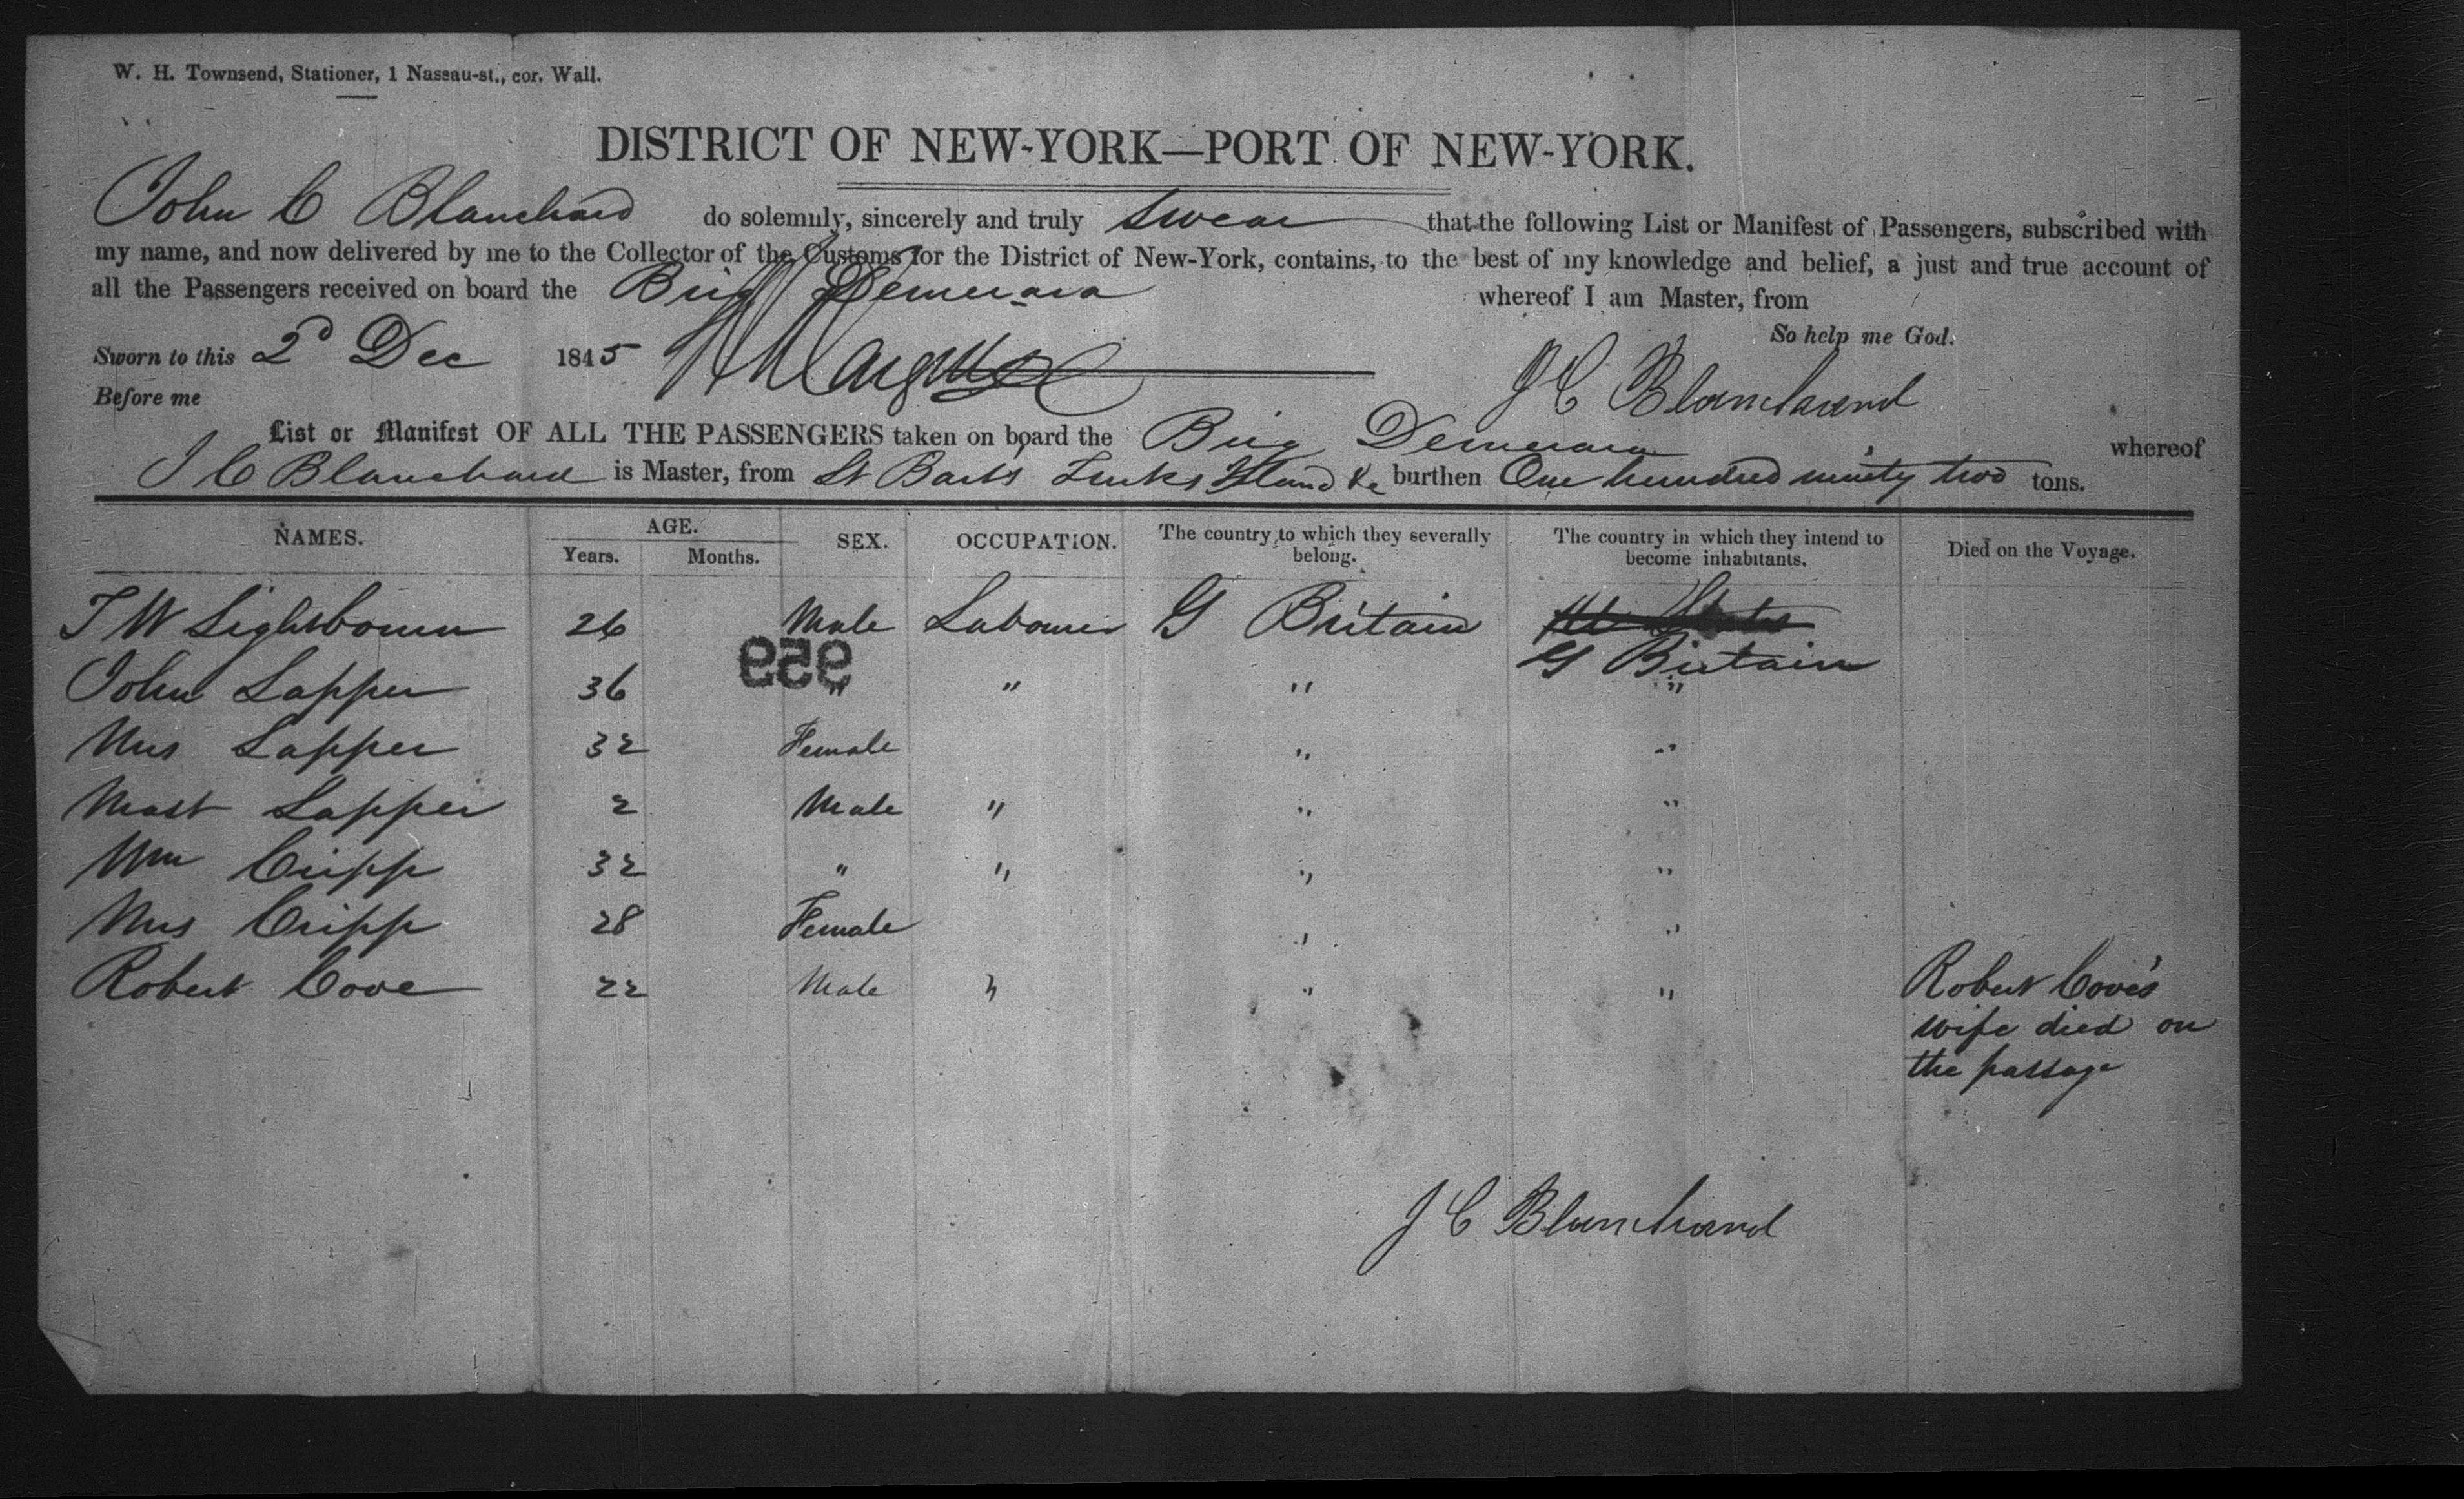 W. H. Townsend, Stationer, 1 Nassau-st., cor. Wall.
DISTRICT OF NEW-YORK—PORT OF NEW-YORK.
John C Blanchard do solemnly, sincerely and truly swear that the following List or Manifest of Passengers, subscribed with
my name, and now delivered by me to the Collector of the Customs for the District of New-York, contains, to the best of my knowledge and belief, a just and true account of
all the Passengers received on board the Brig Demerara whereof I am Master, from
So help me God.
Sworn to this 2d Dec 1845
J C Blanchard
Before me
List or Manifest OF ALL THE PASSENGERS taken on board the Brig Demerara whereof
J C Blanchard is Master, from St Barts Turks Island &c burthen One hundred ninety two tons.
NAMES. AGE. Years. Months. SEX. OCCUPATION. The country to which they severally belong. The country in which they intend to become inhabitants. Died on the Voyage.
T W Lightbourn 26 Male Labourer G Britain
G Britain
959
John Lapper 36 " " " "
Mrs Lapper 32 Female " "
Mast Lapper 2 Male " " "
Wm Cripp 32 " " " "
Mrs Cripp 28 Female " "
Robert Cove 22 Male " " " Robert Cove's
wife died on
the passage
J C Blanchard